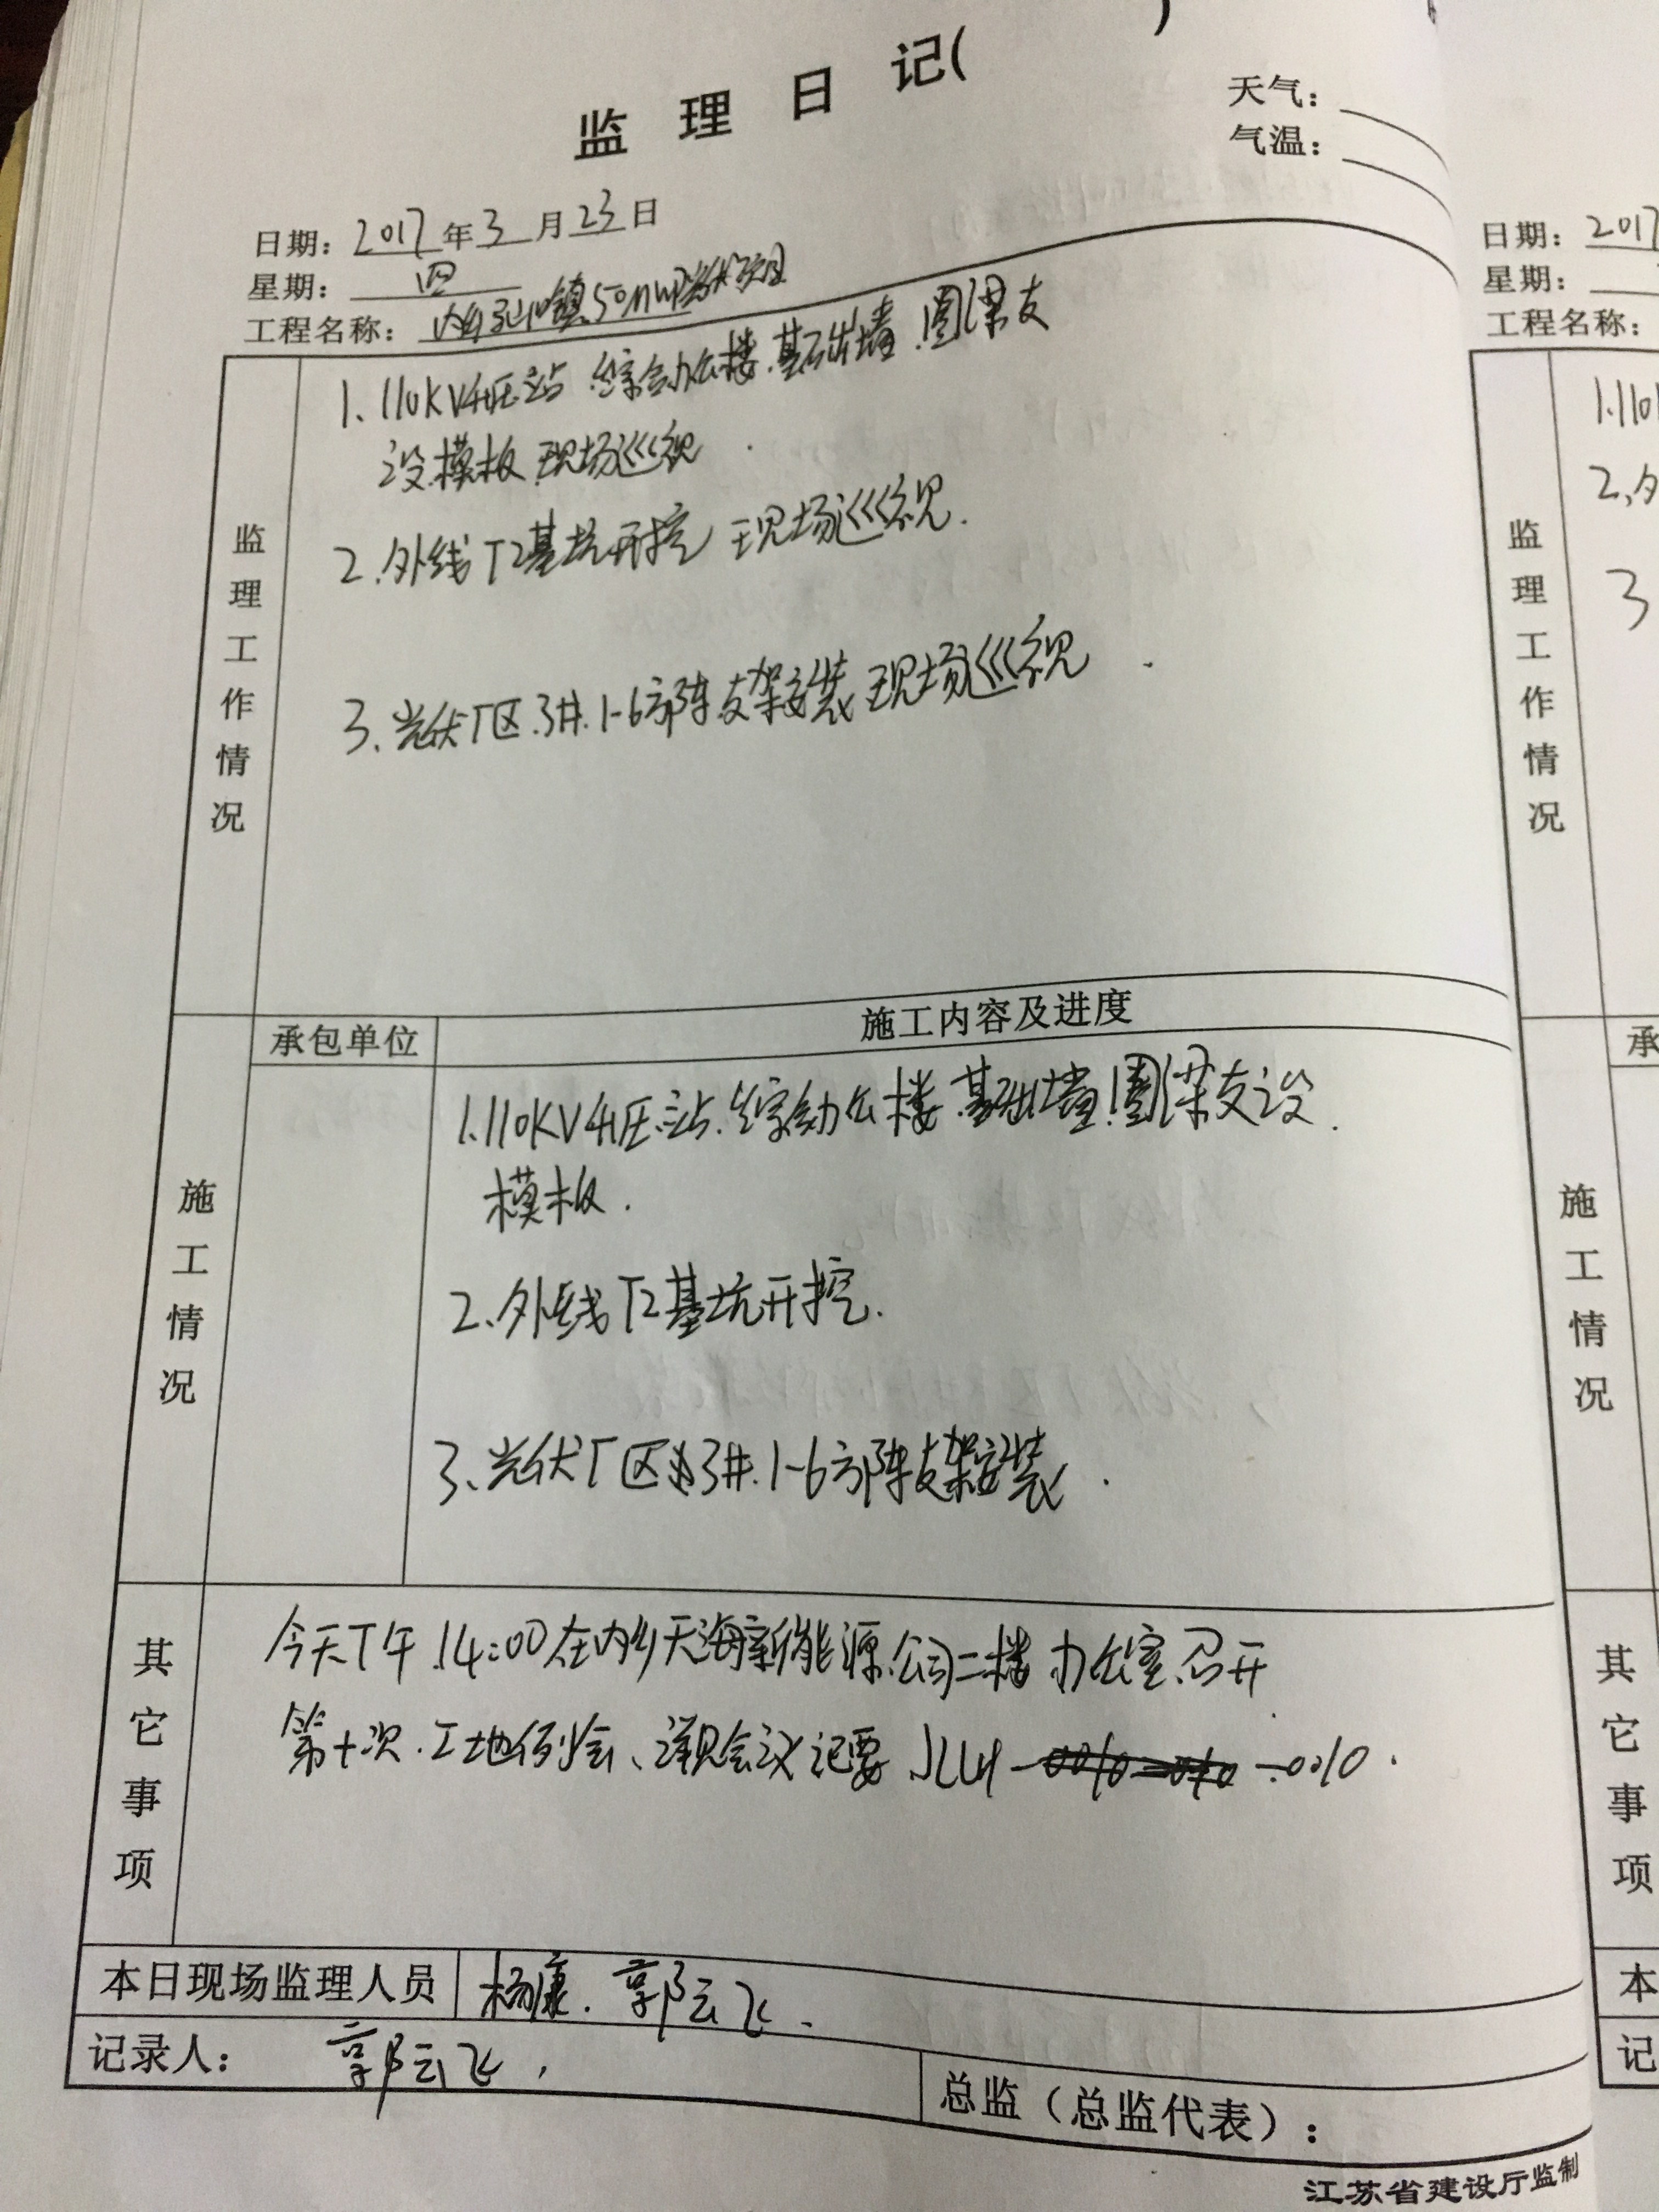 监 理 日 记( )
天气：
气温：
日期：2017年3月23日
星期：四
工程名称：内乡 镇50MWP光伏项目
监理工作情况
1、110KV升压站.综合办公楼.基础墙.圈梁支
设.模板.现场巡视.
2.外线T2基坑开挖 现场巡视.
3、光伏厂区.3#.1-6方阵支架安装现场巡视.
施工情况
承包单位
施工内容及进度
1.110KV升压站.综合办公楼.基础墙.圈梁支设.
模板.
2、外线T2基坑开挖.
3、光伏厂区3#.1-6方阵支架安装.
其它事项
今天下午.14:00在内乡天海新能源.公司二楼办公室.召开
第十次.工地例会、详见会议记要.JLLH-010.
本日现场监理人员
杨康.郭云飞.
记录人：郭云飞.
总监（总监代表）：
江苏省建设厅监制
日期：2017
星期：
工程名称：
监理工作情况
1.110
2、外
3
承
施工情况
其它事项
本
记